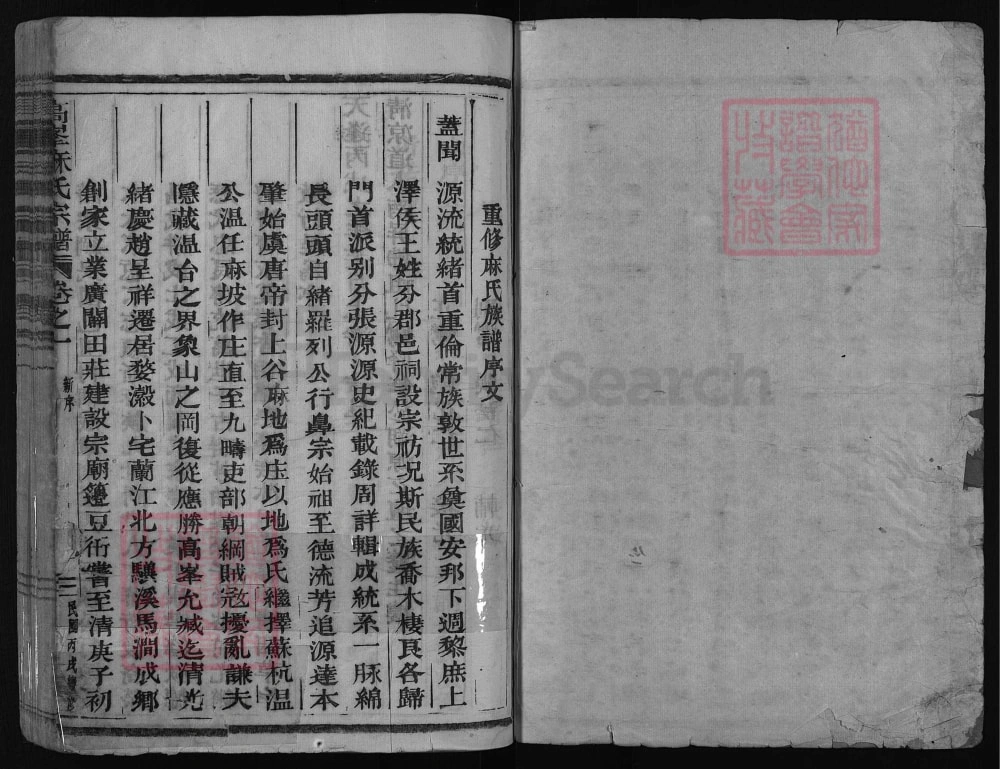 重修麻氏族譜序文
蓋聞
源流統緒首重倫常族敦世系奠國安邦下週黎庶上
澤侯王姓分郡邑祠設宗祊况斯民族喬木棲良各歸
門首派別分張源源史紀載錄周詳輯成統系一脉綿
長頭頭自緒羅列公行鼻宗始祖至德流芳追源達本
肇始虞唐帝封上谷麻地爲庄以地爲氏繼擇蘇杭温
公温任麻坡作庄直至九疇吏部朝綱賊冦擾亂謙夫
隱藏温台之界象山之岡復從應勝高峯允臧迄清光
緒慶趙呈祥遷居婺瀫卜宅蘭江北方驥溪馬澗成鄉
創家立業廣闢田莊建設宗廟籩豆衎嘗至清庚子初
高峯麻氏宗譜
卷之一
新序
一
民國丙戌
譜學會
特藏
FamilySearch